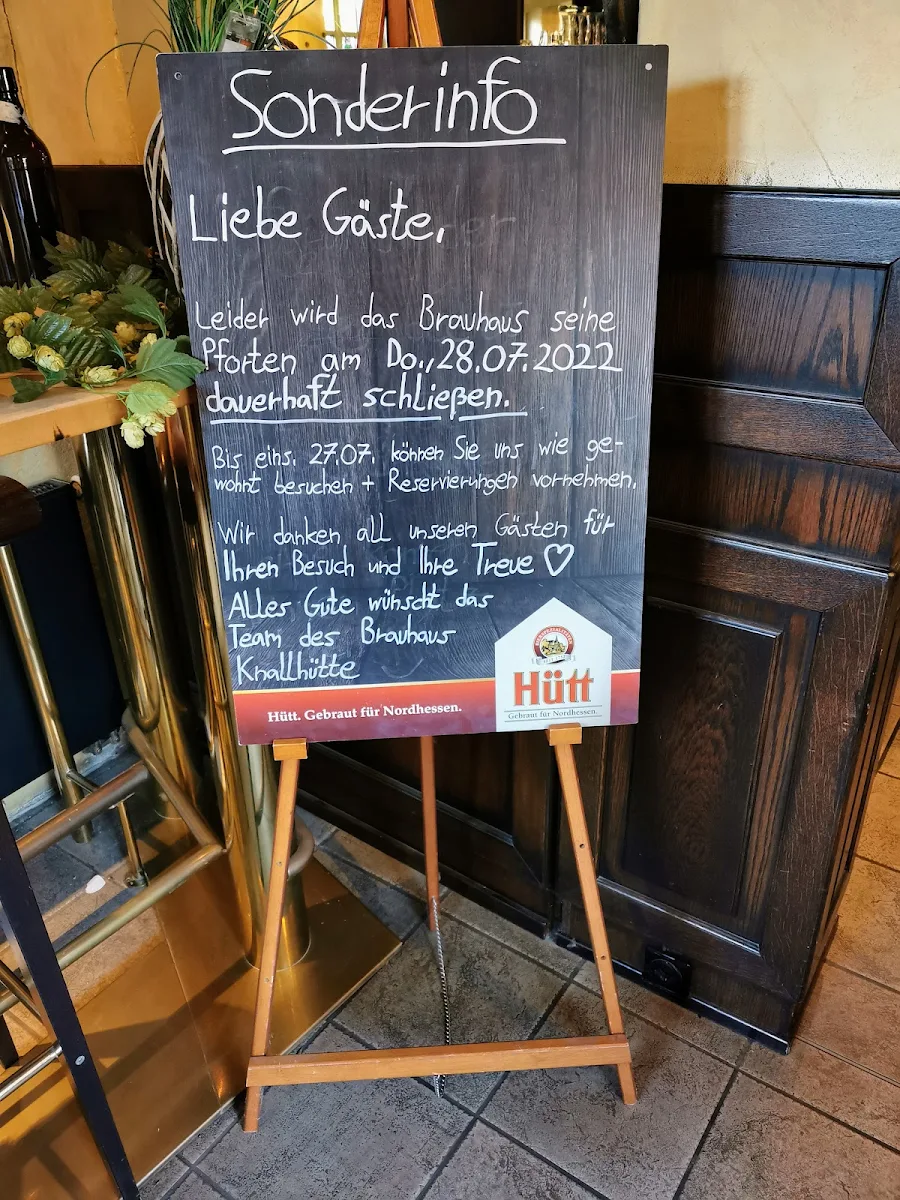 Sonderinfo
Liebe Gäste,
Leider wird das Brauhaus seine
Pforten am Do., 28.07.2022
dauerhaft schließen.
Bis eins. 27.07. können Sie uns wie ge-
wohnt besuchen + Reservierungen vornehmen.
Wir danken all unseren Gästen für
Ihren Besuch und Ihre Treue ♡
Alles Gute wünscht das
Team des Brauhaus
Knallhütte
Hütt. Gebraut für Nordhessen.
Hütt
Gebraut für Nordhessen.